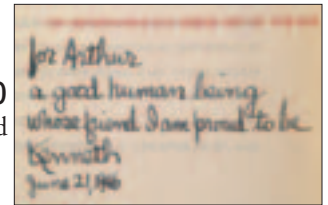 for Arthur
a good human being
whose friend I am proud to be
Kenneth
June 21, 1966